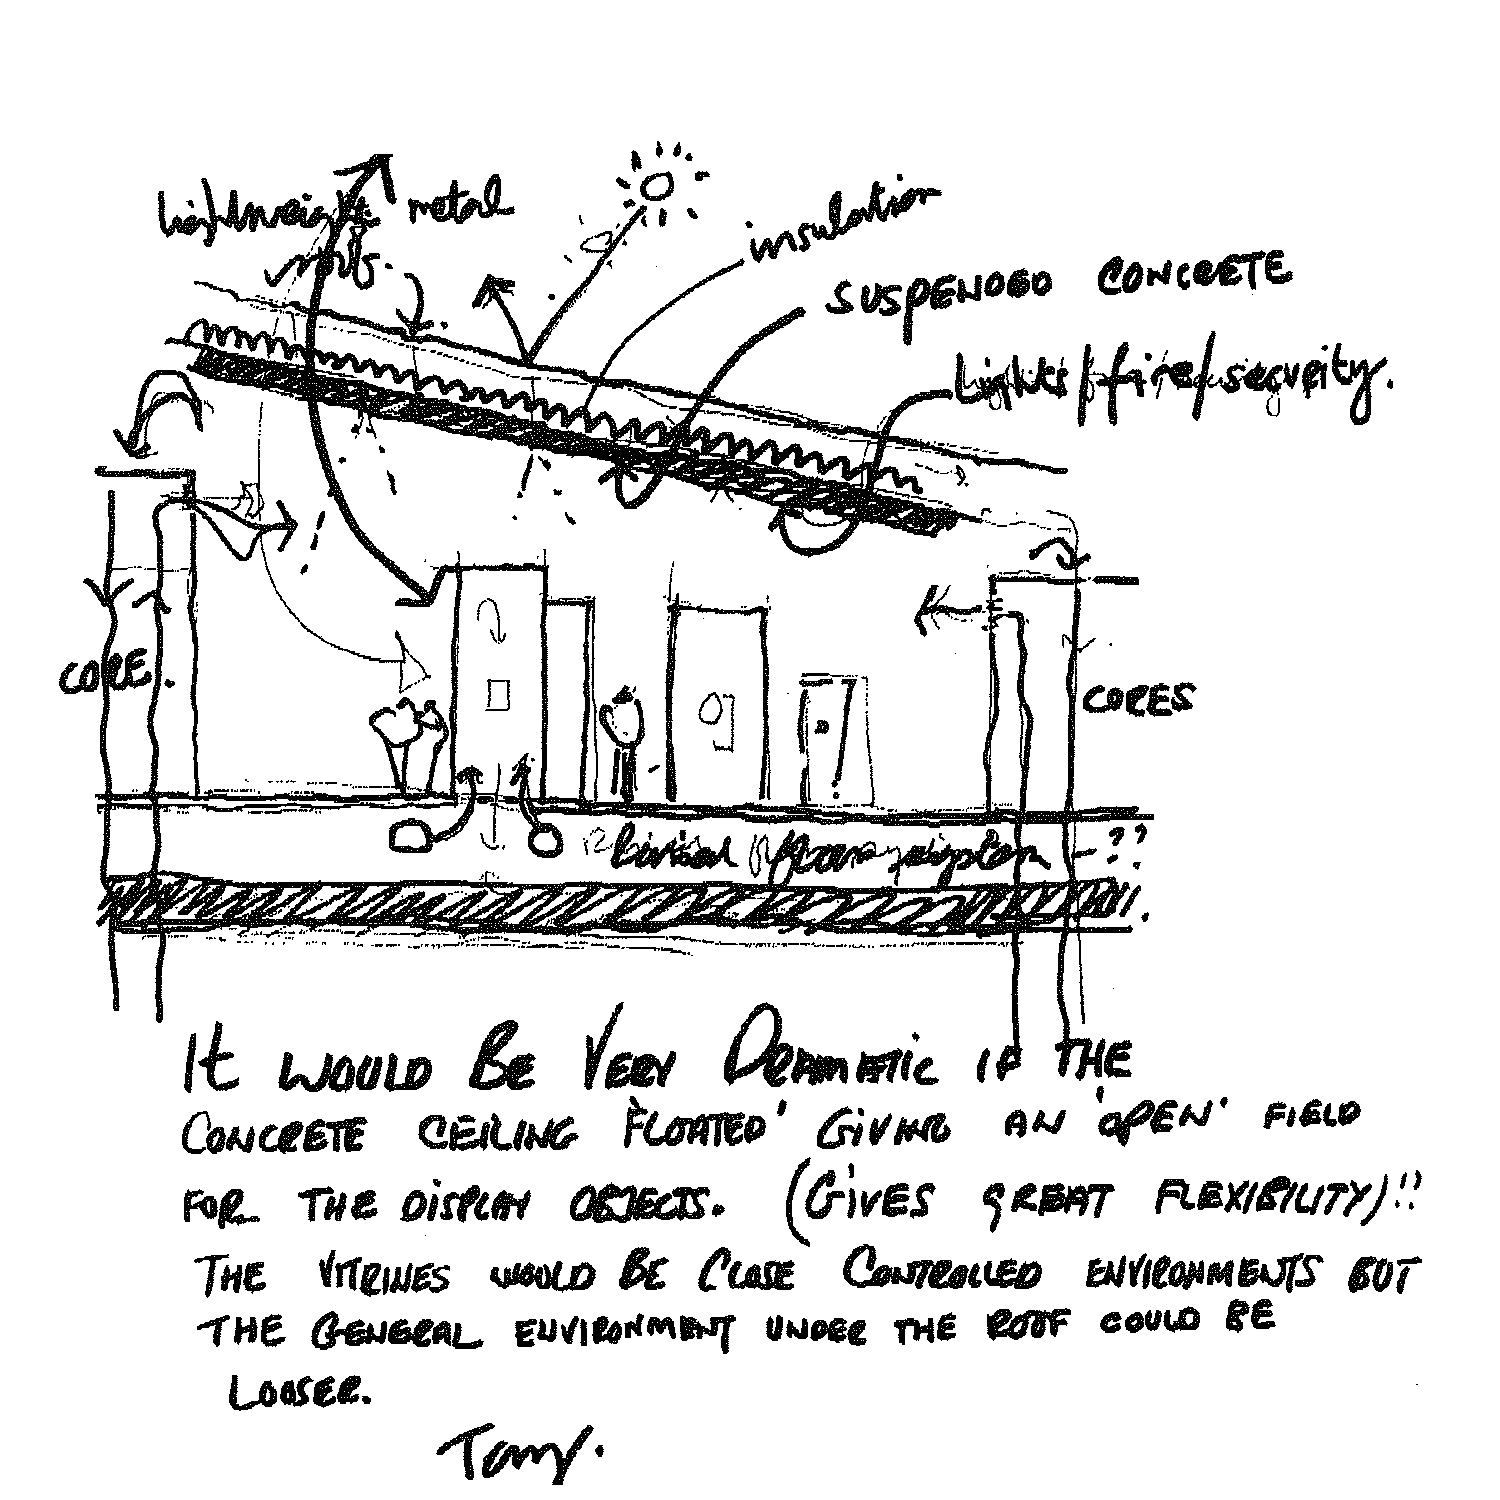 Lightweight metal
roof.
insulation
SUSPENDED CONCRETE
Lights/fire/security.
CORE.
CORES
floor system - ??
IT WOULD BE VERY DRAMATIC IF THE
CONCRETE CEILING 'FLOATED' GIVING AN 'OPEN' FIELD
FOR THE DISPLAY OBJECTS. (GIVES GREAT FLEXIBILITY)!!
THE VITRINES WOULD BE CLOSE CONTROLLED ENVIRONMENTS BUT
THE GENERAL ENVIRONMENT UNDER THE ROOF COULD BE
LOOSER.
Tony.